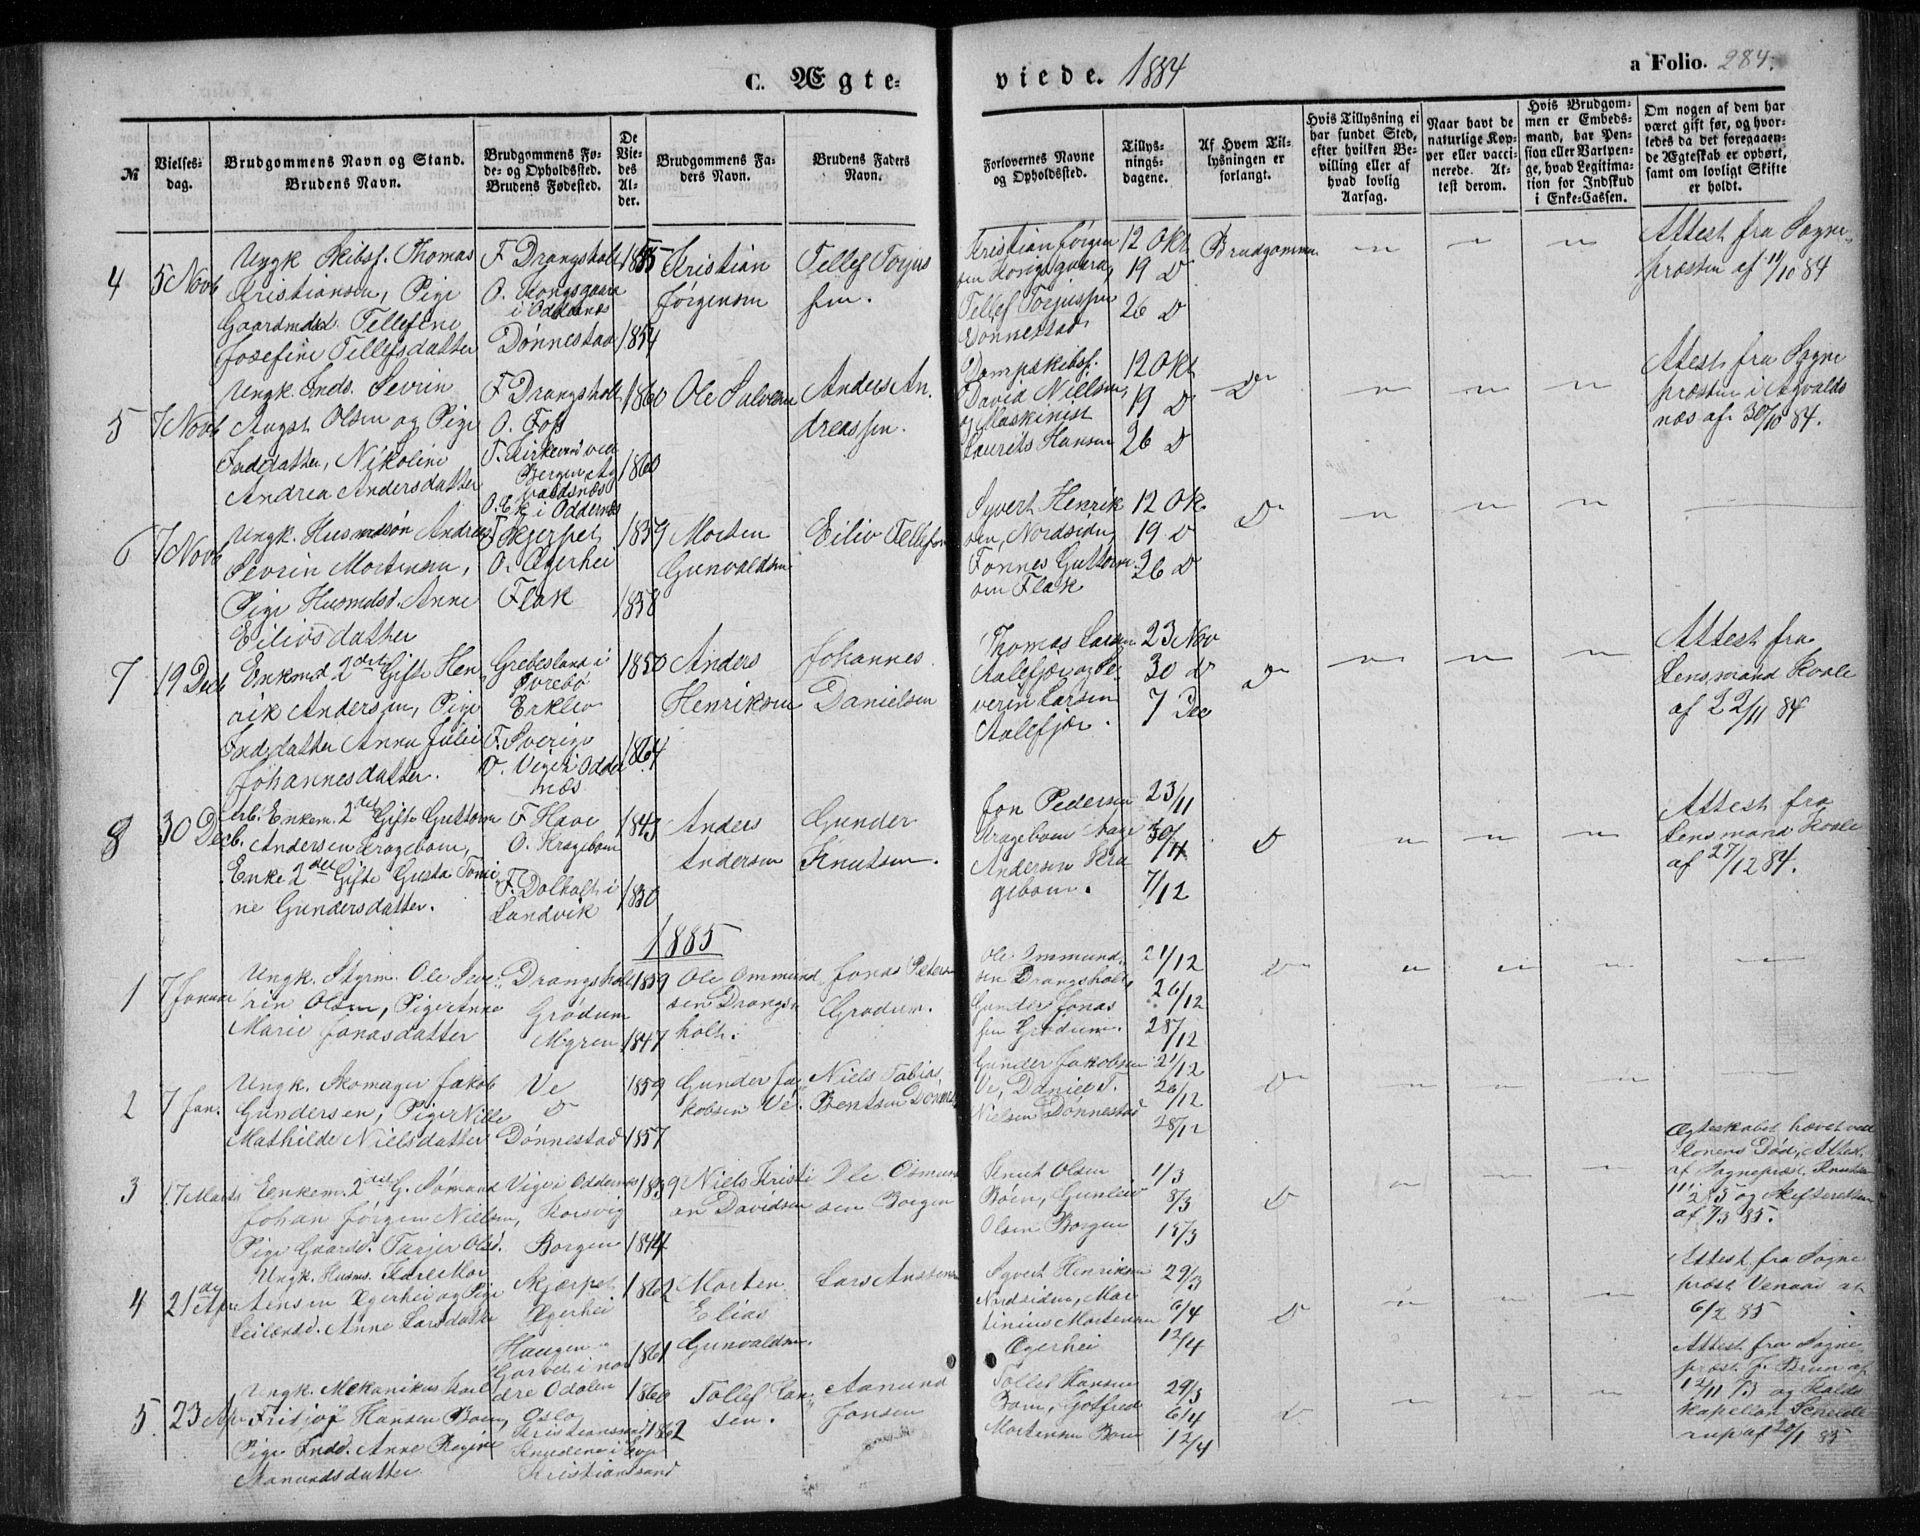 C. Ægte-
viede. 1884
a Folio. 284.
№
Vielses-
dag.
Brudgommens Navn og Stand.
Brudens Navn.
Brudgommens Fø-
de- og Opholdsted.
Brudens Fødested.
De
Vie-
des
Al-
der.
Brudgommens Fa-
ders Navn.
Brudens Faders
Navn.
Forlovernes Navne
og Opholdsted.
Tillys-
nings-
dagene.
Af Hvem Til-
lysningen er
forlangt.
Hvis Tillysning ei
har fundet Sted,
efter hvilken Be-
villing eller af
hvad lovlig
Aarsag.
Naar havt de
naturlige Kop-
per eller vacci-
nerede. At-
test derom.
Hvis Brudgom-
men er Embeds-
mand, har Pen-
sion eller Vartpen-
ge, hvad Legitima-
tion for Indskud
i Enke-Cassen.
Om nogen af dem har
været gift før, og hvor-
ledes da det foregaaen-
de Ægteskab er ophørt,
samt om lovligt Skifte
er holdt.
4
5 Novb
Ungk. Skibsf. Thomas
Kristiansen, Pige
Gaardmdd. Tellefine
Josefine Tellefsdatter
F. Drangsholt
O. Kongsgaard
i Oddernes
Dønnestad
1855
1854
Kristian
Jørgensen
Tellef Torjus
sen.
Kristian Jørgen
sen Kongsgaard,
Tellef Torjussen
Dønnestad
12 Okt
19 D
26 D
Brudgommen
Attest fra Sogne-
præsten af 11/10 84
5
7 Novb
Ungk. Inds. Sevrin
August Olsen og Pige
Indsdatter, Nikoline
Andrea Andersdatter
F. Drangsholt
O. Foss
F. Kirkevei ved
Bergen Ag
valdsnæs
O. Ek i Oddernes
1860
1860
Ole Salvesen
Anders An
dreassen.
Dampskibsf.
David Nielsen,
og Maskinist
Laurits Hansen
12 Okt
19 D
26 D
Do
Attest fra Sogne
præsten i Agvalds
næs af 30/10 84.
6
7 Novb
Ungk. Husmssøn Andreas
Sevrin Mortensen,
Pige Husmdsd. Anne
Eilivsdatter
F. Skjerpet
O. Ægerhei
Flak
1859
1858
Morten
Gunvaldsen
Eiliv Tellefsen
Syvert Henrik
sen, Nordsiden,
Tonnes Guttorm
sen Flak
12 Ok.
19 D
26 D
Do
7
19 Decb
Enkemd 2det Gifte Hen
rik Andersen, Pige
Indsdatter Anna Julie
Johannesdatter.
Grebesland i
Øvrebø
Erklev
F. Sverige
O. Vige i Odder
næs
1850
1864
Anders
Henriksen
Johannes
Danielsen
Thomas Larsen
Aalefjær og Se
verin Larsen
Aalefjær.
23 Nov
30 D
7 Dec
Do
Attest fra
Lensmand Kvale
af 22/11 84
8
30 Decb.
Arb. Enkem. 2det Gifte Guttorm
Andersen Kragebom,
Enke 2det Gifte Gusta Tomi
ne Gundersdatter.
F. Have
O. Kragebom
F. Dalholt i
Landvik
1843
1830
Anders
Andersen
Gunder
Knutsen.
Jon Pedersen
Kragebom Aage
Andersen Kra
gebom.
23/11
30/11
7/12
D
Attest fra
Lensmand Kvale
af 27/12 84.
1885
1
7 Januar
Ungk. Styrm. Ole Seve-
rin Olsen, Pige Anne
Marie Jonasdatter
Drangsholt
Grødum
Mgren
1859
1847
Ole Ommund
sen Drangs
holt.
Jonas Peders
Grødum.
Ole Ommund
sen Drangsholt,
Gunder Jonas
sen Grødum.
21/12
26/12
28/12
Do
2
7 Jan.
Ungk. Skomager Jakob
Gundersen, Pige Nille
Mathilde Nielsdatter
Ve
D
Dønnestad
1859
1857
Gunder Ja
kobsen Ve.
Niels Tobias
Bentsen Dønnes
Gunder Jakobsen
Ve, Daniel T.
Nielsen Dønnestad
21/12
26/12
28/12
Do
3
17 Marts
Enkem. 2det G. Sømand
Johan Jørgen Nielsen,
Pige Gaardd. Tarjer Olsd.
Vige i Oddernes
Korsvig
Borgen
1839
1844
Niels Kristi
an Davidsen
Ole Osmund
sen Borgen
Knut Olsen
Boen, Gunleiv
Olsen Borgen
1/3
8/3
15/3
D
Ægteskabet hævet ved
Konens Død, Attest
af Sognepræst Knudsen
11/2 85 og Skifteretten
af 7/3 85.
4
21de Apr
Ungk. Husms. Karl Mor
tensen Ægerhei og Pige
Leilændd. Anne Larsdatter
Skjærpet
Ægerhei
Haugen
Garbet i nor
dre Odalen
1862
1861
Morten
Elias
Gunvaldsen
Lars Anstensen
Syvert Henriksen
Nordsiden, Mar
tinius Mortensen
Ægerhei
29/3
6/4
12/4
D
Attest fra Sogne
præst Venaas af
6/2 85
5
23 Apr
Ungk. Mekanikus Karl
Fritjof Hansen Boen,
Pige Indd. Anne Regine
Aamundsdatter
Oslo
Kristianssand
Knudene i Evje
Kristianssand
1860
1862
Tollef Han
sen.
Aamund
Jonsen
Tollef Hansen
Boen, Gotfred
Mortensen Boen
29/3
6/4
12/4
D
Attest fra Sogne
præst J. Brun af
12/11 73 og Kalds
kapellan Schelde
rup af 20/1 85